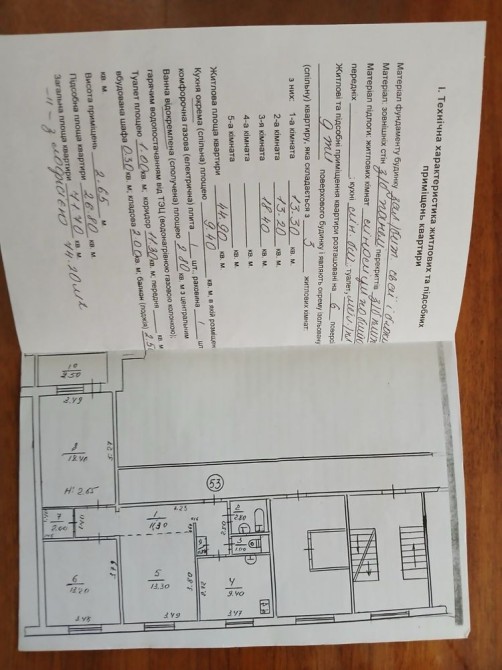 I. Технічна характеристика житлових та підсобних
приміщень квартири
Матеріал фундаменту будинку зал. бет. сваї і блоки
Матеріал: зовнішніх стін з/б панелі перекриття з/б плит
Матеріал підлоги: житлових кімнат
передніх кухні туалет
Житлові та підсобні приміщення квартири розташовані на 6 поверсі
9 ти поверхового будинку і являють окрему ізольовану
(спільну) квартиру, яка складається з 3 житлових кімнат:
з них: 1-а кімната 13.30 кв. м
2-а кімната 13.20 кв. м
3-я кімната 18.40 кв. м
4-а кімната кв. м
5-а кімната кв. м
Житлова площа квартири 44.90 кв. м, в якій розміщен
Кухня окрема (спільна) площею 9.40
комфорочна газова (електрична) плита шт., раковина 1 шт
Ванна відокремлена (сполучена) площею 2.80 кв. м з центральним
гарячим водопостачанням від ТЕЦ (водонагрівною газовою колонкою);
Туалет площею 1.00 кв. м, коридор 11.30 кв. м, передня кв. м
вбудована шафа 0.30 кв. м, кладова 2.00 кв. м, балкон (лоджія) 2.50
кв. м.
Висота приміщень 2.65 м
Підсобна площа квартири 26.80 кв. м
Загальна площа квартири 71.70 кв. м
-"- з лоджією 74.20 м²
10
2.50
3.49
8
18.40
H=2.65
7
2.00
6
13.20
3.48
53
1
11.30
4.23
5
13.30
3.49
2
2.80
3
1.00
4
9.40
3.48